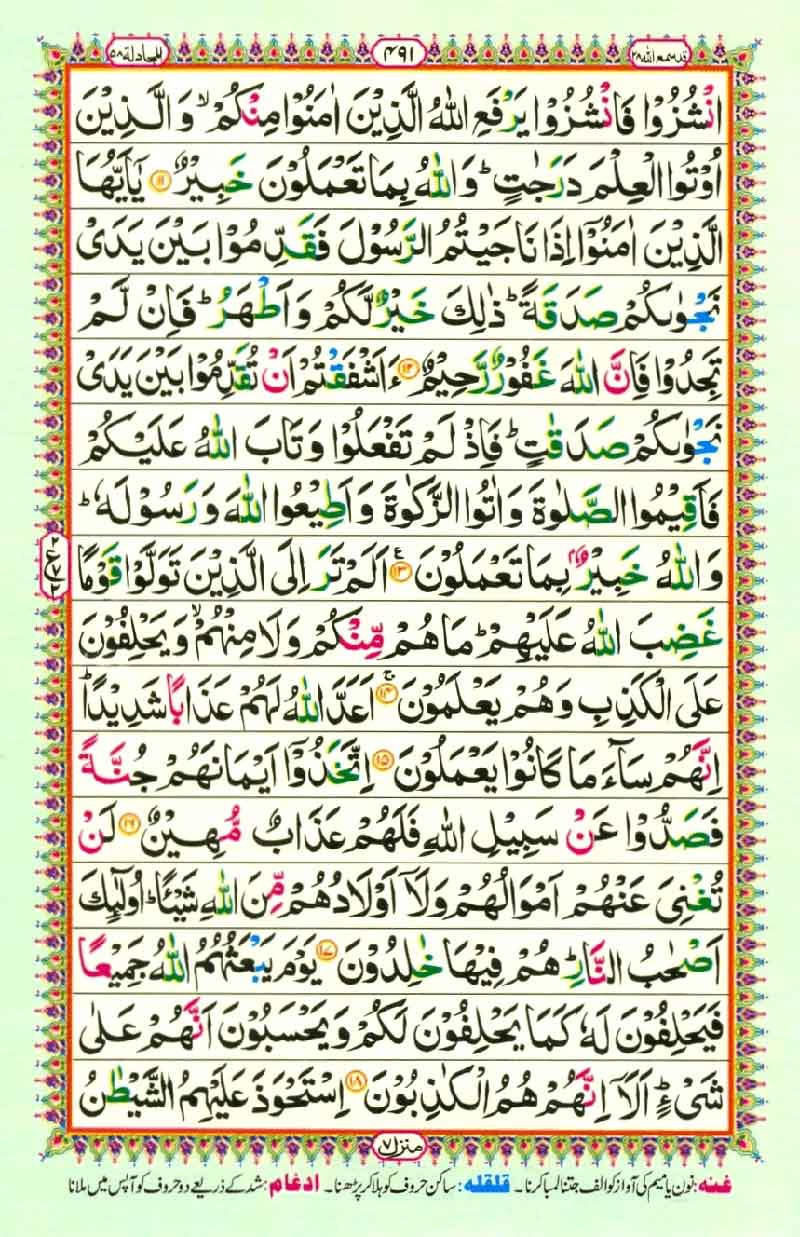 قد سمع الله ۲۸
۴۹۱
المجادلة ۵۸
انْشُزُوْا فَانْشُزُوْا یَرْفَعِ اللّٰهُ الَّذِیْنَ اٰمَنُوْا مِنْكُمْ ۙ وَ الَّذِیْنَ
اُوْتُوا الْعِلْمَ دَرَجٰتٍ ؕ وَ اللّٰهُ بِمَا تَعْمَلُوْنَ خَبِیْرٌ ۱۱ یٰۤاَیُّهَا
الَّذِیْنَ اٰمَنُوْۤا اِذَا نَاجَیْتُمُ الرَّسُوْلَ فَقَدِّمُوْا بَیْنَ یَدَیْ
نَجْوٰىكُمْ صَدَقَةً ؕ ذٰلِكَ خَیْرٌ لَّكُمْ وَ اَطْهَرُ ؕ فَاِنْ لَّمْ
تَجِدُوْا فَاِنَّ اللّٰهَ غَفُوْرٌ رَّحِیْمٌ ۱۲ ءَاَشْفَقْتُمْ اَنْ تُقَدِّمُوْا بَیْنَ یَدَیْ
نَجْوٰىكُمْ صَدَقٰتٍ ؕ فَاِذْ لَمْ تَفْعَلُوْا وَ تَابَ اللّٰهُ عَلَیْكُمْ
فَاَقِیْمُوا الصَّلٰوةَ وَ اٰتُوا الزَّكٰوةَ وَ اَطِیْعُوا اللّٰهَ وَ رَسُوْلَهٗ ؕ
وَ اللّٰهُ خَبِیْرٌۢ بِمَا تَعْمَلُوْنَ ۱۳ اَلَمْ تَرَ اِلَى الَّذِیْنَ تَوَلَّوْا قَوْمًا
غَضِبَ اللّٰهُ عَلَیْهِمْ ؕ مَا هُمْ مِّنْكُمْ وَ لَا مِنْهُمْ ۙ وَ یَحْلِفُوْنَ
عَلَى الْكَذِبِ وَ هُمْ یَعْلَمُوْنَ ۱۴ اَعَدَّ اللّٰهُ لَهُمْ عَذَابًا شَدِیْدًا ؕ
اِنَّهُمْ سَآءَ مَا كَانُوْا یَعْمَلُوْنَ ۱۵ اِتَّخَذُوْۤا اَیْمَانَهُمْ جُنَّةً
فَصَدُّوْا عَنْ سَبِیْلِ اللّٰهِ فَلَهُمْ عَذَابٌ مُّهِیْنٌ ۱۶ لَنْ
تُغْنِیَ عَنْهُمْ اَمْوَالُهُمْ وَ لَاۤ اَوْلَادُهُمْ مِّنَ اللّٰهِ شَیْـًٔا ؕ اُولٰٓىِٕكَ
اَصْحٰبُ النَّارِ ؕ هُمْ فِیْهَا خٰلِدُوْنَ ۱۷ یَوْمَ یَبْعَثُهُمُ اللّٰهُ جَمِیْعًا
فَیَحْلِفُوْنَ لَهٗ كَمَا یَحْلِفُوْنَ لَكُمْ وَ یَحْسَبُوْنَ اَنَّهُمْ عَلٰى
شَیْءٍ ؕ اَلَاۤ اِنَّهُمْ هُمُ الْكٰذِبُوْنَ ۱۸ اِسْتَحْوَذَ عَلَیْهِمُ الشَّیْطٰنُ
۲ ع ۷ ۲
منزل ۷
غنه : نون یا میم کی آواز کو الف جتنا لمبا کرنا ۔ قلقله : ساکن حروف کو ہلا کر پڑھنا ۔ ادغام : شد کے ذریعے دو حروف کو آپس میں ملانا